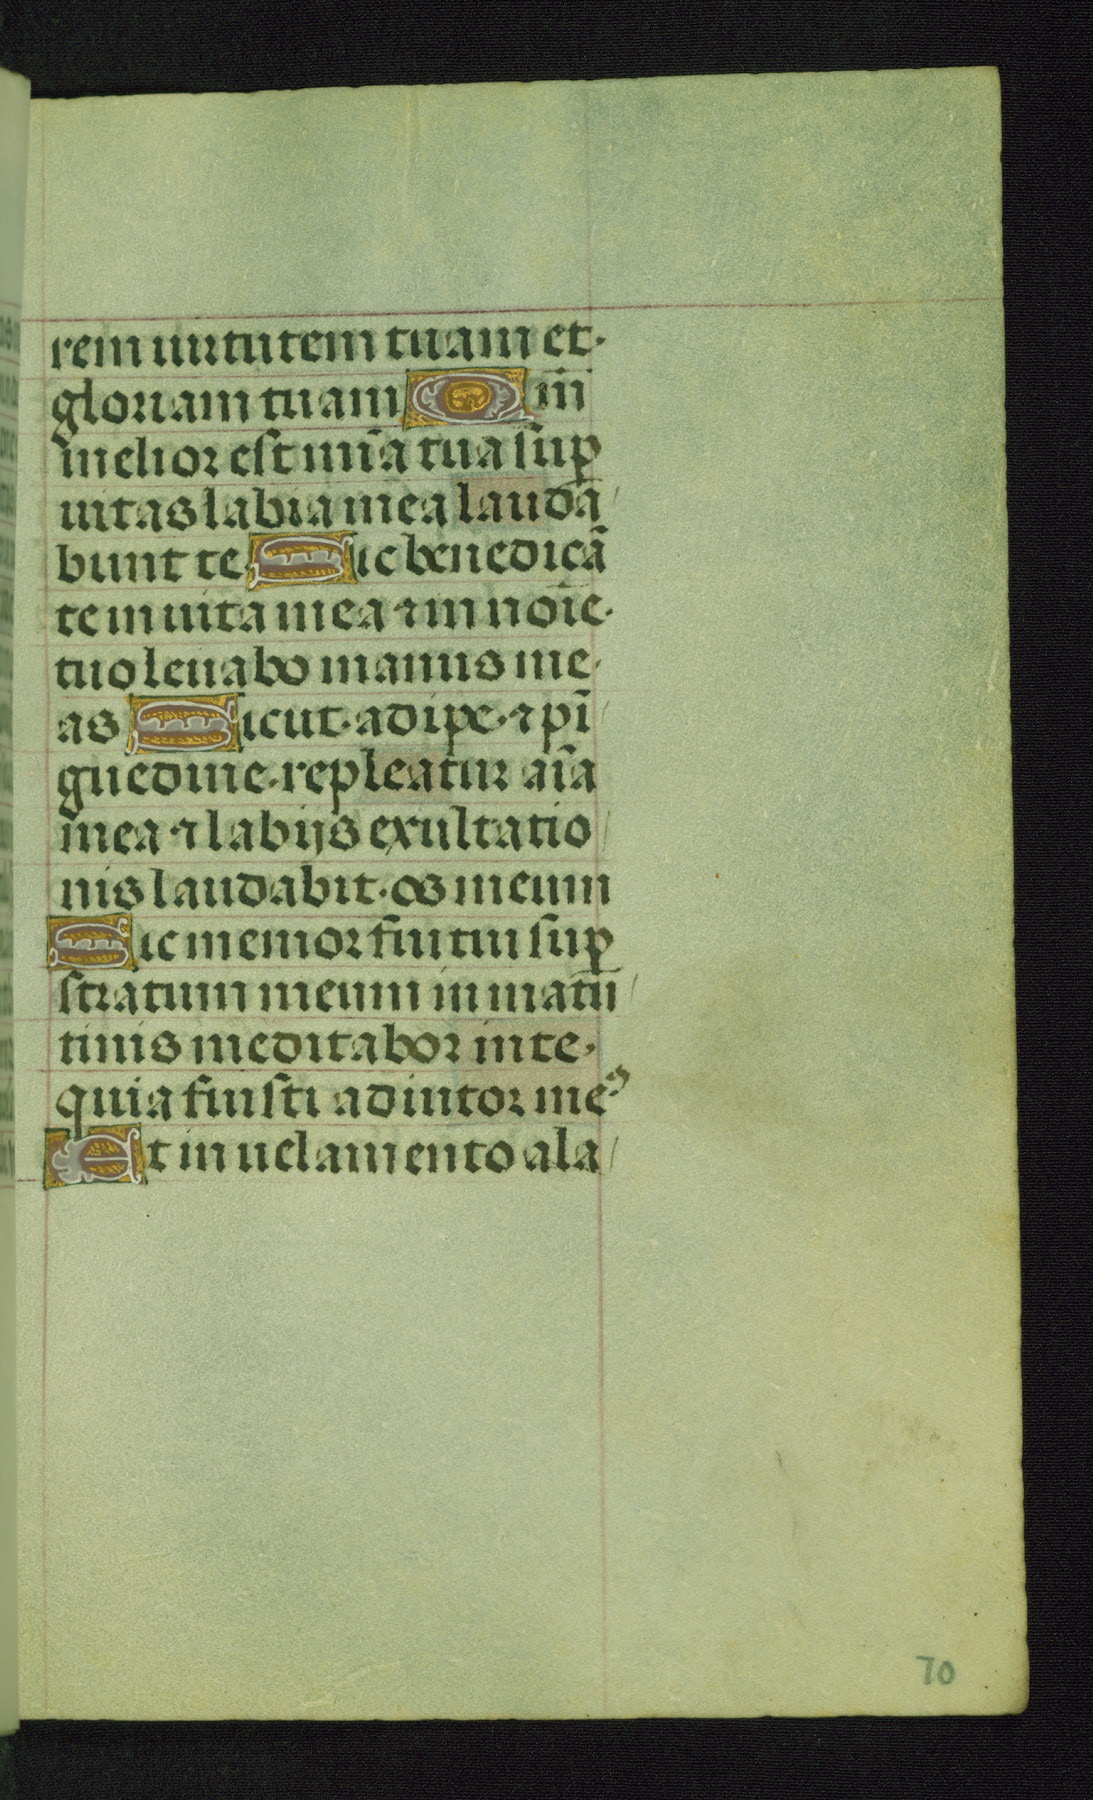 rem uirtutem tuam et·
gloriam tuam Qm̄
melior est mīa tua sup̱
uitas labia mea laudā/
bunt te Sic benedicā
te in uita mea ⁊ in noīe·
tuo leuabo manus me·
as Sicut·adipe·⁊ pī/
guedine·repleatur aīa
mea ⁊ labijs exultatio/
nis laudabit·os meum
Sic memor fui tui sup̱
stratum meum in matū/
tinis meditabor in te·
quia fuisti adiutor meꝰ
Et in uelamento ala/
70